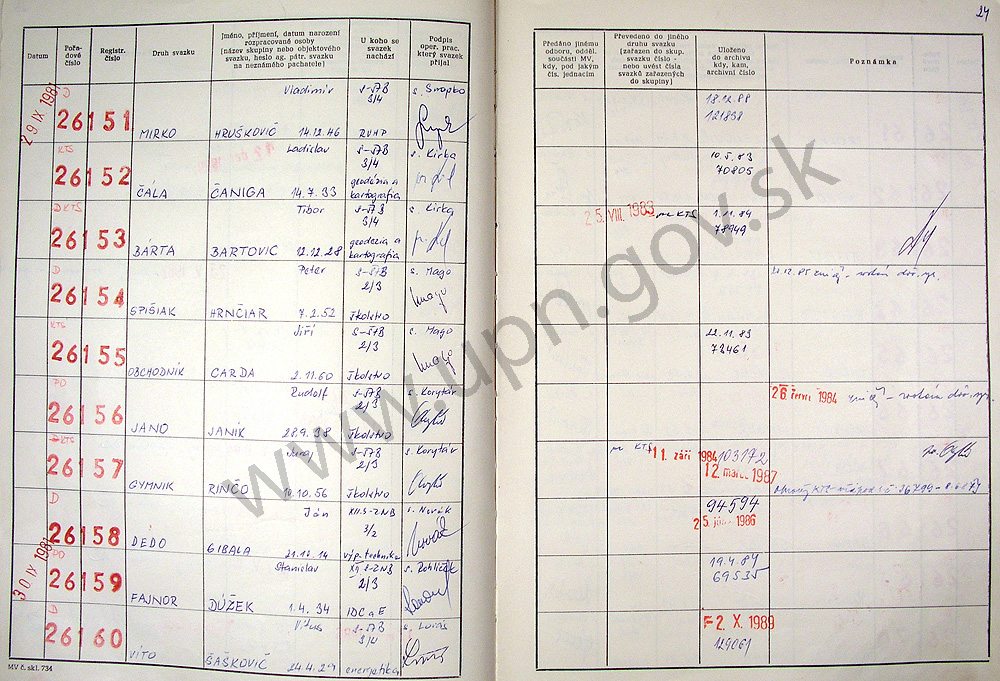 24
Datum
Pořa-
dové
číslo
Registr.
číslo
Druh svazku
Jméno, příjmení, datum narození
rozpracované osoby
(název skupiny nebo objektového
svazku, heslo ag. pátr. svazku
na neznámého pachatele)
U koho se
svazek
nachází
Podpis
oper. prac.
který svazek
přijal
Předáno jinému
odboru, odděl.
součásti MV,
kdy, pod jakým
čís. jednacím
Převedeno do jiného
druhu svazku
(zařazen do skup.
svazku číslo -
nebo uvést čísla
svazků zařazených
do skupiny)
Uloženo
do archivu
kdy, kam,
archivní číslo
Poznámka
29 IX 1981
26151
MIRKO
Vladimír
HRUŠKOVIČ 14.12.46
S-ŠTB
3/4
RVHP
s. Snopko
18.12.88
121838
KTS
26152
ČÁLA
Ladislav
ČANIGA 14.7.33
S-ŠTB
3/4
geodézia a
kartografia
s. Kirka
10.5.83
70805
DKTS
26153
BÁRTA
Tibor
BARTOVIC 12.12.28
S-ŠTB
3/4
geodezia a
kartografia
s. Kirka
25. VIII. 1983
KTS
1.11.84
78949
D
26154
SPIŠIAK
Peter
HRNČIAR 7.2.52
S-ŠTB
2/3
školstvo
s. Mago
KTS
26155
OBCHODNÍK
Jiří
CARDA 2.11.60
S-ŠTB
2/3
školstvo
s. Mago
22.11.83
72461
PO
26156
JANO
Rudolf
JANÍK 28.9.38
S-ŠTB
2/3
školstvo
s. Korytár
26 červ. 1984
DKTS
26157
GYMNIK
Juraj
RINČO 10.10.56
S-ŠTB
2/3
školstvo
s. Korytár
KTS
11. září 1984
103172
12 1987
D
26158
DEDO
Ján
GIBALA 21.11.14
XII.S-ZNB
3/2
výp. technika
s. Novák
94594
25 1986
30 IX 1981
PO
26159
FAJNOR
Stanislav
DÚŽEK 1.4.34
XII S-ZNB
2/3
IDC a E
19.4.84
69535
D
26160
VÍTO
Vítus
ŠAŠKOVIČ 24.4.29
S-ŠTB
3/4
energetika
-2. X. 1989
129061
MV č. skl. 734
www.upn.gov.sk